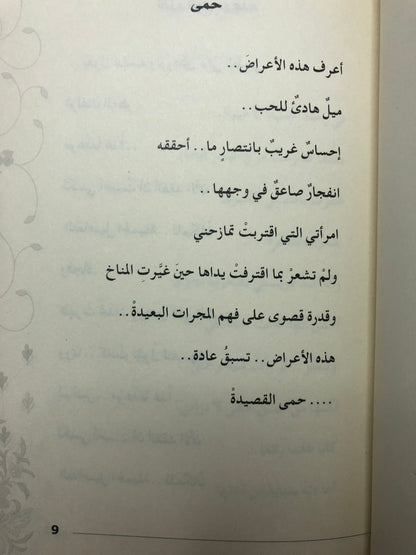 حمى
أعرف هذه الأعراضَ..
ميلٌ هادئٌ للحب..
إحساسٌ غريبٌ بانتصارٍ ما.. أحققه
انفجارٌ صاعقٌ في وجهها..
امرأتي التي اقتربتْ تمازحني
ولمْ تشعرْ بما اقترفتْ يداها حينَ غيَّرتِ المناخ
وقدرة قصوى على فهم المجرات البعيدةْ..
هذه الأعراض.. تسبقُ عادة..
.... حمى القصيدةْ
9